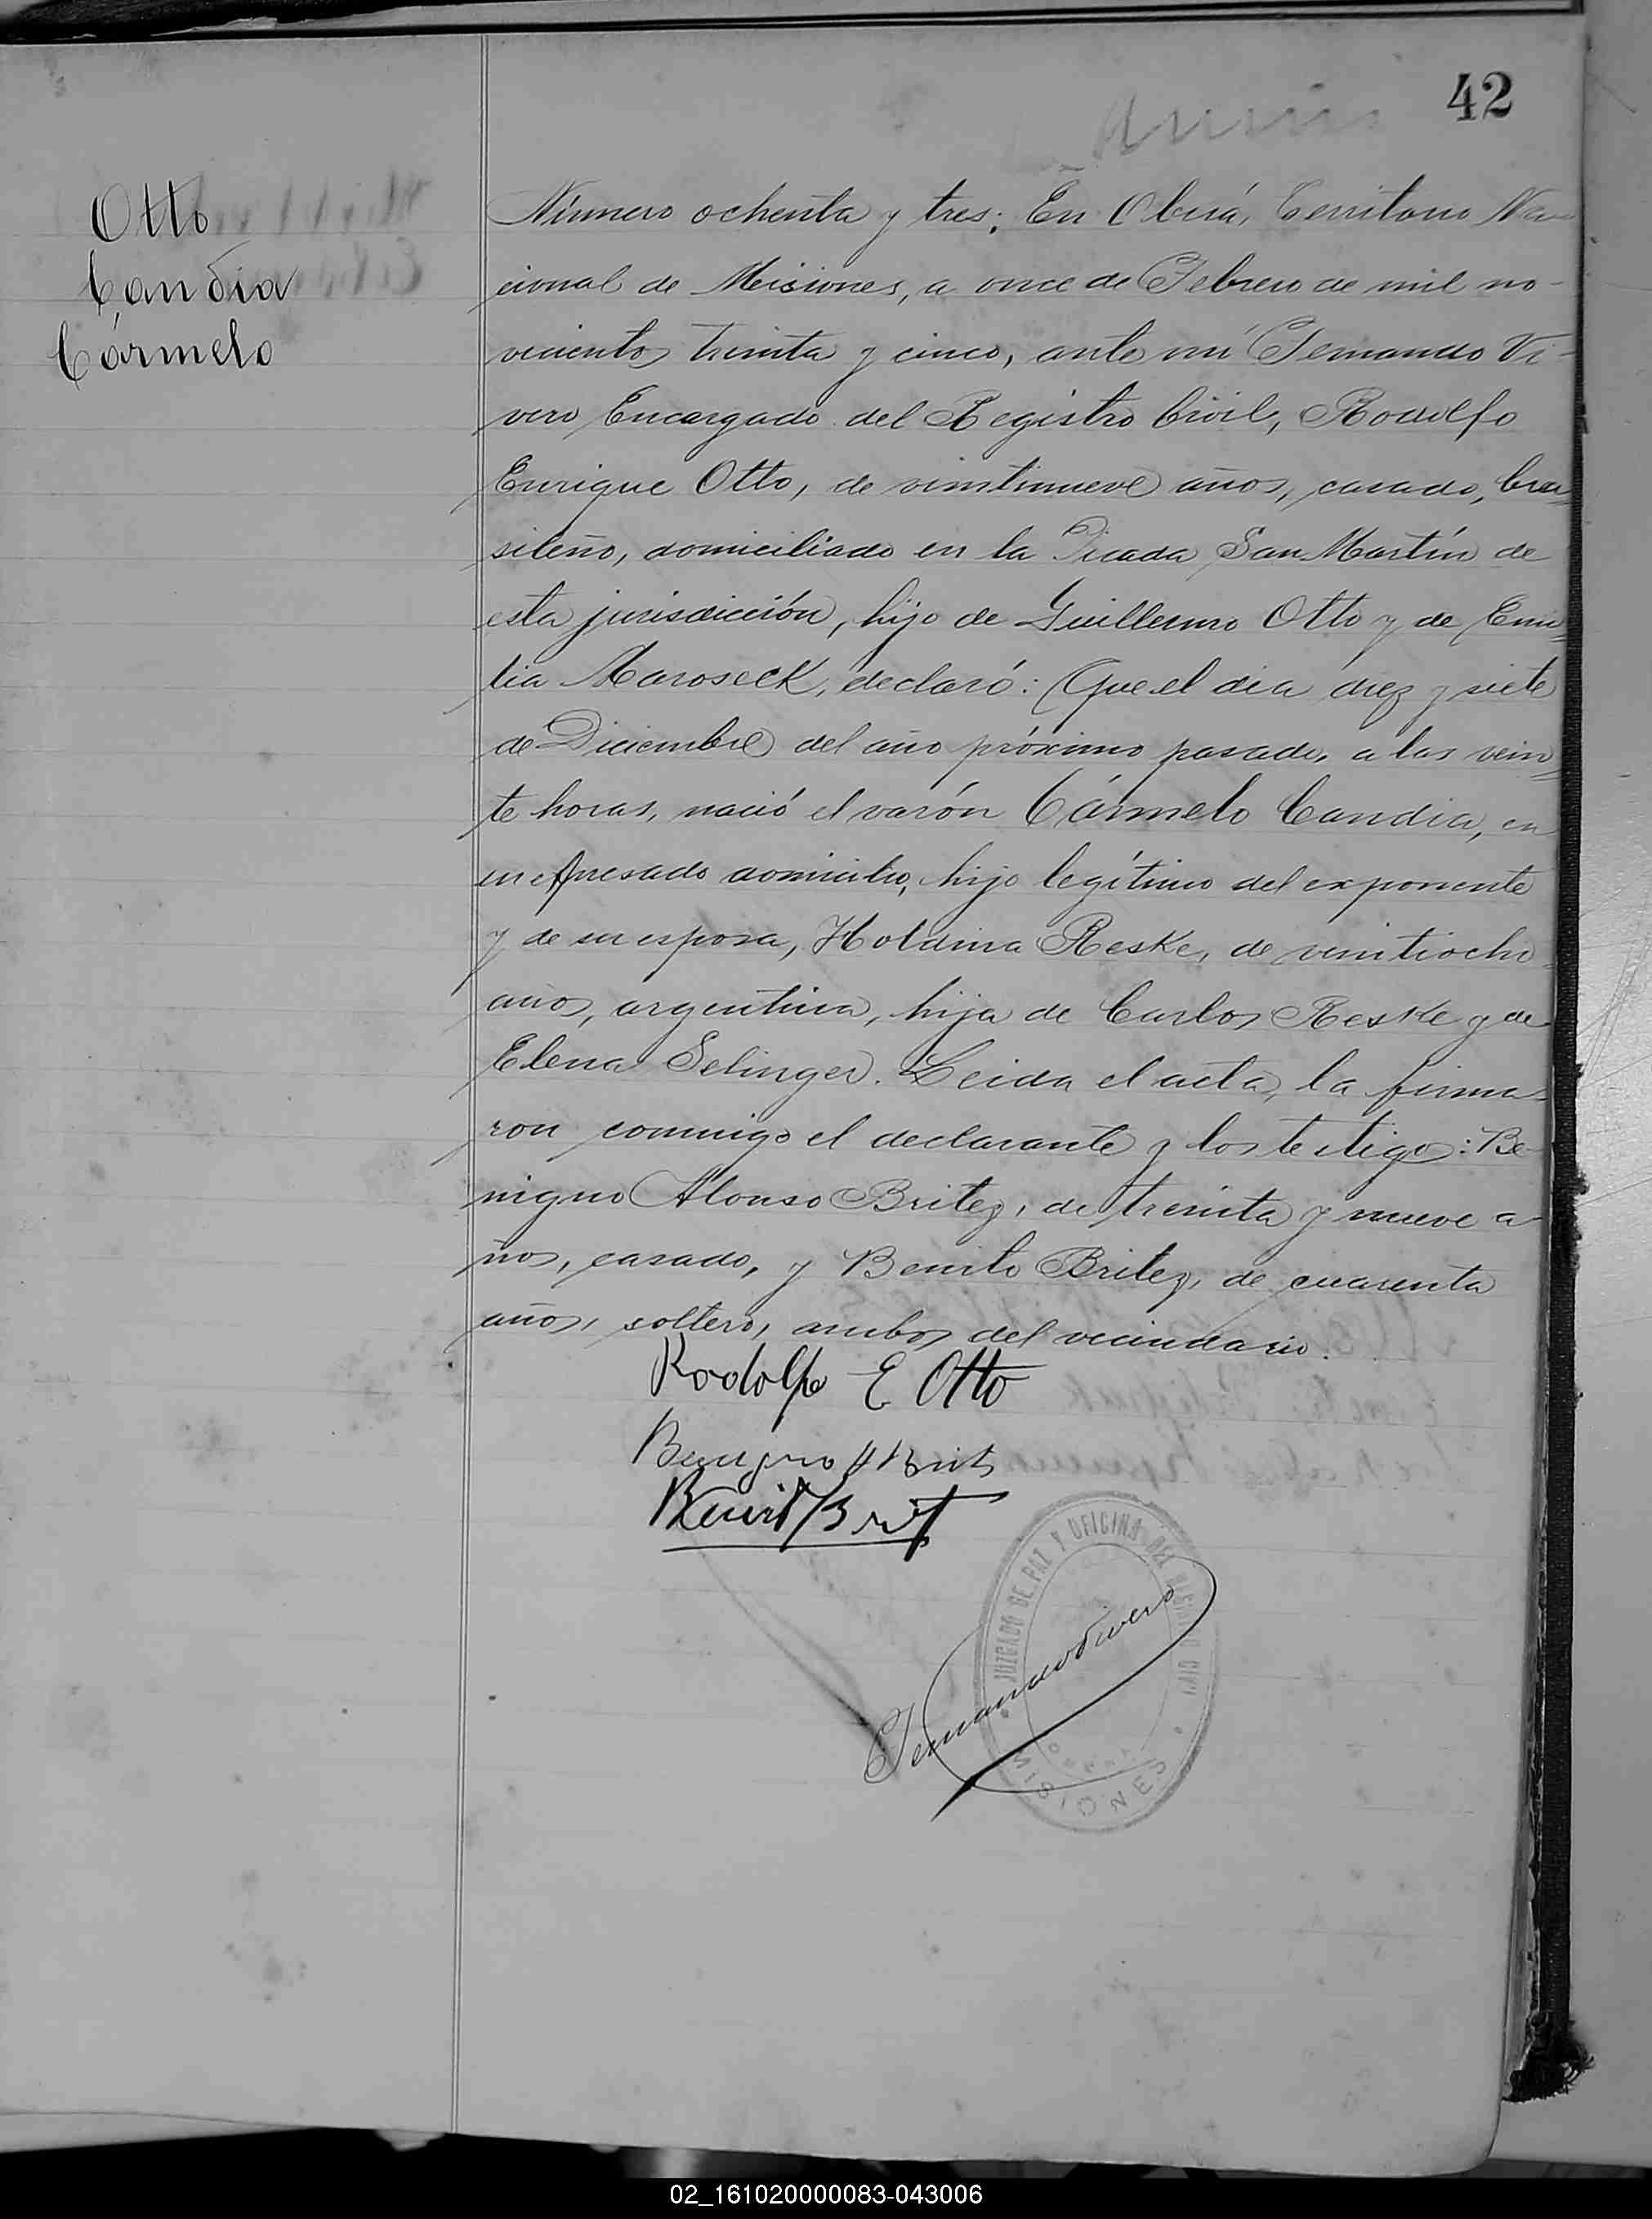 42
Otto
Candia
Cármelo
Número ochenta y tres: En Oberá, Territorio Na-
cional de Misiones, a once de Febrero de mil no-
vecientos treinta y cinco, ante mí Fernando Vi-
vero Encargado del Registro Civil, Rodolfo
Enrique Otto, de veintinueve años, casado, bra-
sileño, domiciliado en la Picada San Martín de
esta jurisdicción, hijo de Guillermo Otto y de Emi-
lia Maroseck, declaró: Que el día diez y siete
de Diciembre del año próximo pasado, a las vein-
te horas, nació el varón Cármelo Candia, en
su expresado domicilio, hijo legítimo del exponente
y de su esposa, Holdina Reske, de veintiocho
años, argentina, hija de Carlos Reske y de
Elena Selinger. Leida el acta, la firma-
ron conmigo el declarante y los testigos: Be-
nigno Alonso Britez, de treinta y nueve a-
ños, casado, y Benito Britez, de cuarenta
años, soltero, ambos del vecindario.
Rodolfo E Otto
Benigno A Brits
Benit Brit
Fernando Vivero
JUZGADO DE PAZ Y OFICINA DEL REGISTRO CIVIL
OBERA
MISIONES
02_161020000083-043006